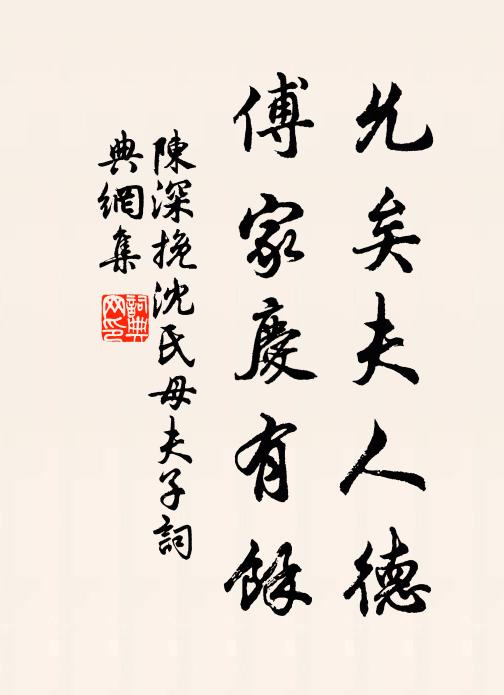 允矣夫人德
傅家慶有餘
陳深挽沈氏母夫子詞
典網集
詞典網印